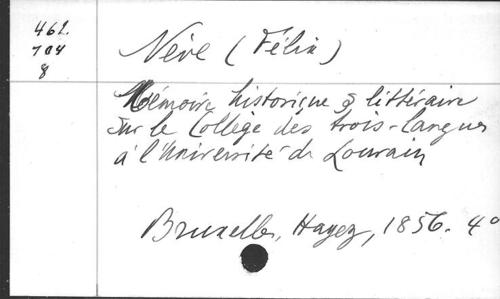 462.
704
8
Nève (Félix)
Mémoire historique & littéraire
sur le Collège des trois-langues
à l'Université de Louvain
Bruxelles, Hayez, 1856. 4°